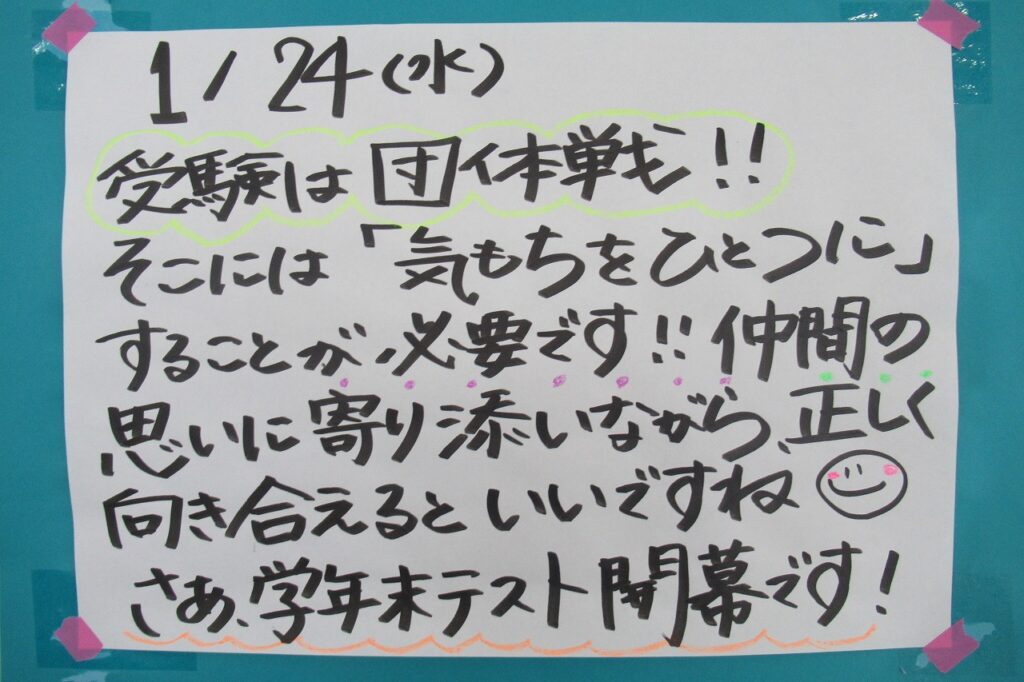 1/24(水)
受験は団体戦も!!
そこには「気もちをひとつに」
することが必要です!!仲間の
思いに寄り添いながら、正しく
向き合えるといいですね
さあ、学年末テスト開幕です!